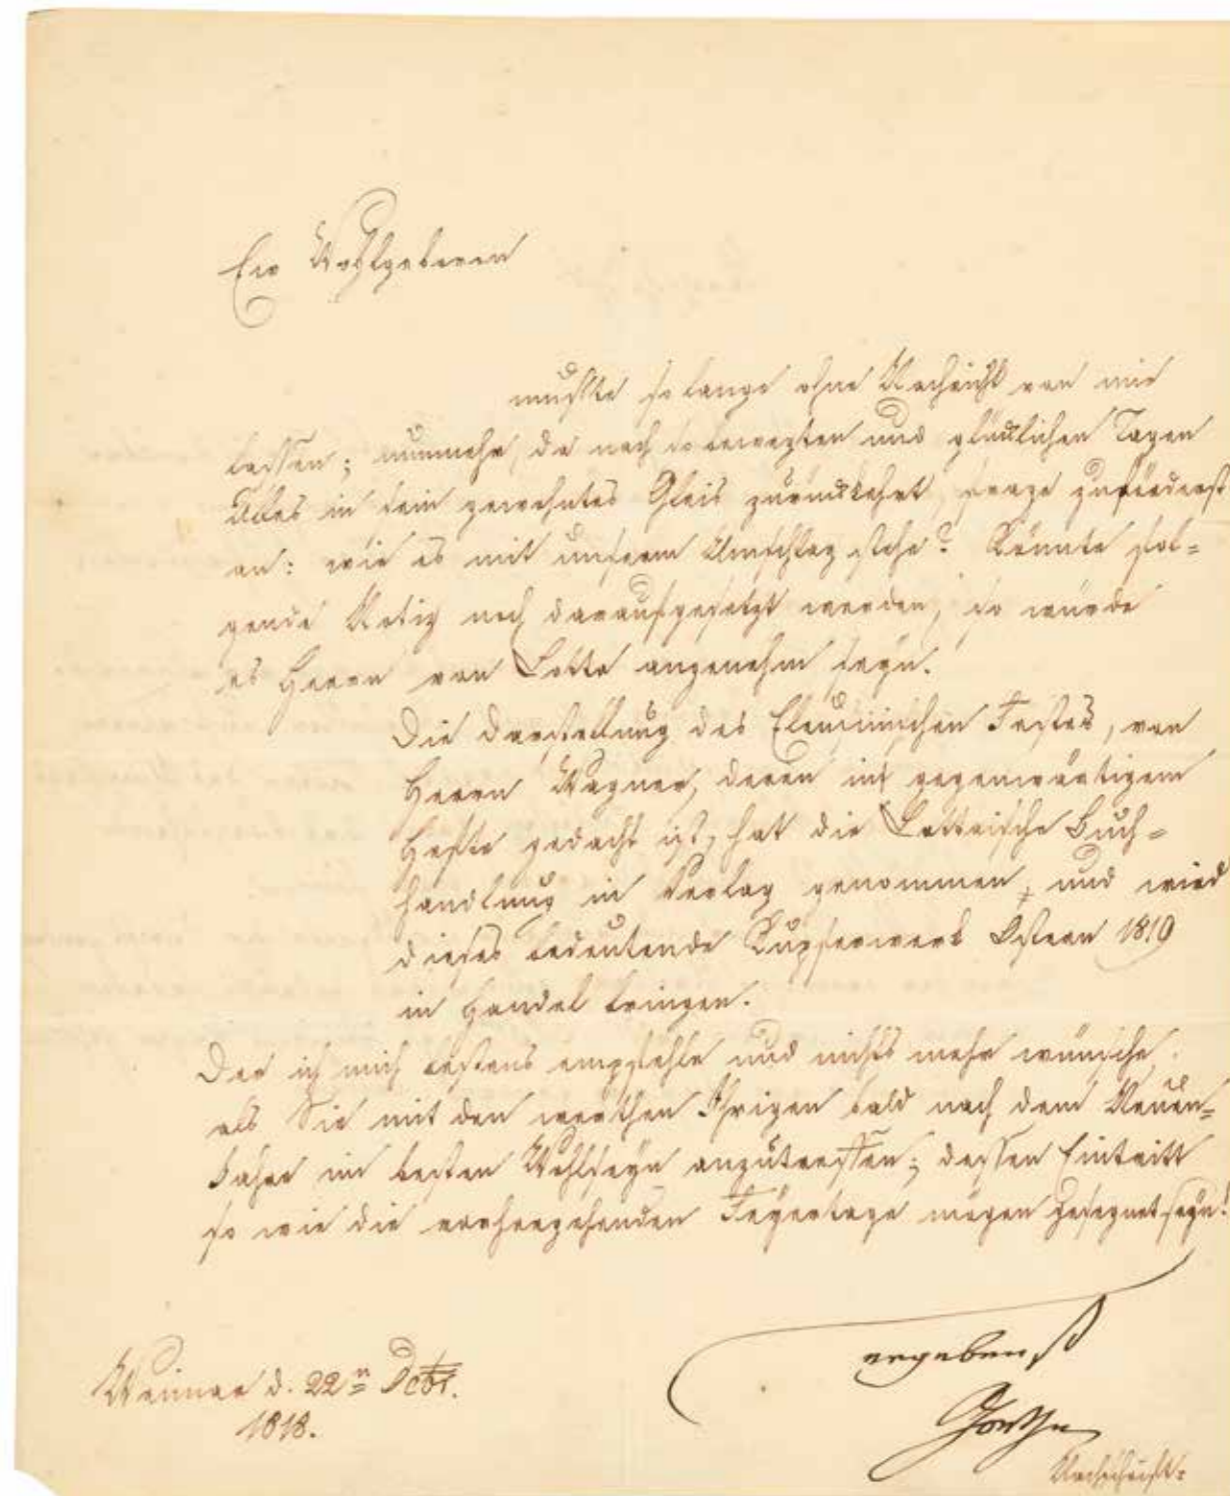 Ew Wohlgeboren
mußte so lange ohne Nachricht von mir
lassen; nunmehr, da nach so bewegten und glücklichen Tagen
Alles in sein gewohntes Gleis zurückkehrt, frage zuförderst
an: wie es mit unserm Umschlag stehe? Könnte fol=
gende Notiz noch daraufgesetzt werden, so würde
es Herrn von Cotta angenehm seyn.
Die Darstellung des Eleusinischen Festes, von
Herrn Wagner, deren im gegenwärtigem
Hefte gedacht ist, hat die Cottaische Buch=
handlung in Verlag genommen, und wird
dieses bedeutende Kupferwerk Ostern 1819
in Handel bringen.
Der ich mich bestens empfehle und nichts mehr wünsche,
als Sie mit den werthen Ihrigen bald nach dem Neuen=
Jahre im besten Wohlseyn anzutreffen; dessen Eintritt
so wie die vorhergehenden Feyertage mögen gesegnet seyn!
ergebenst
Weimar d. 22n Dcbr.
1818.
Goethe
Nachschrift: